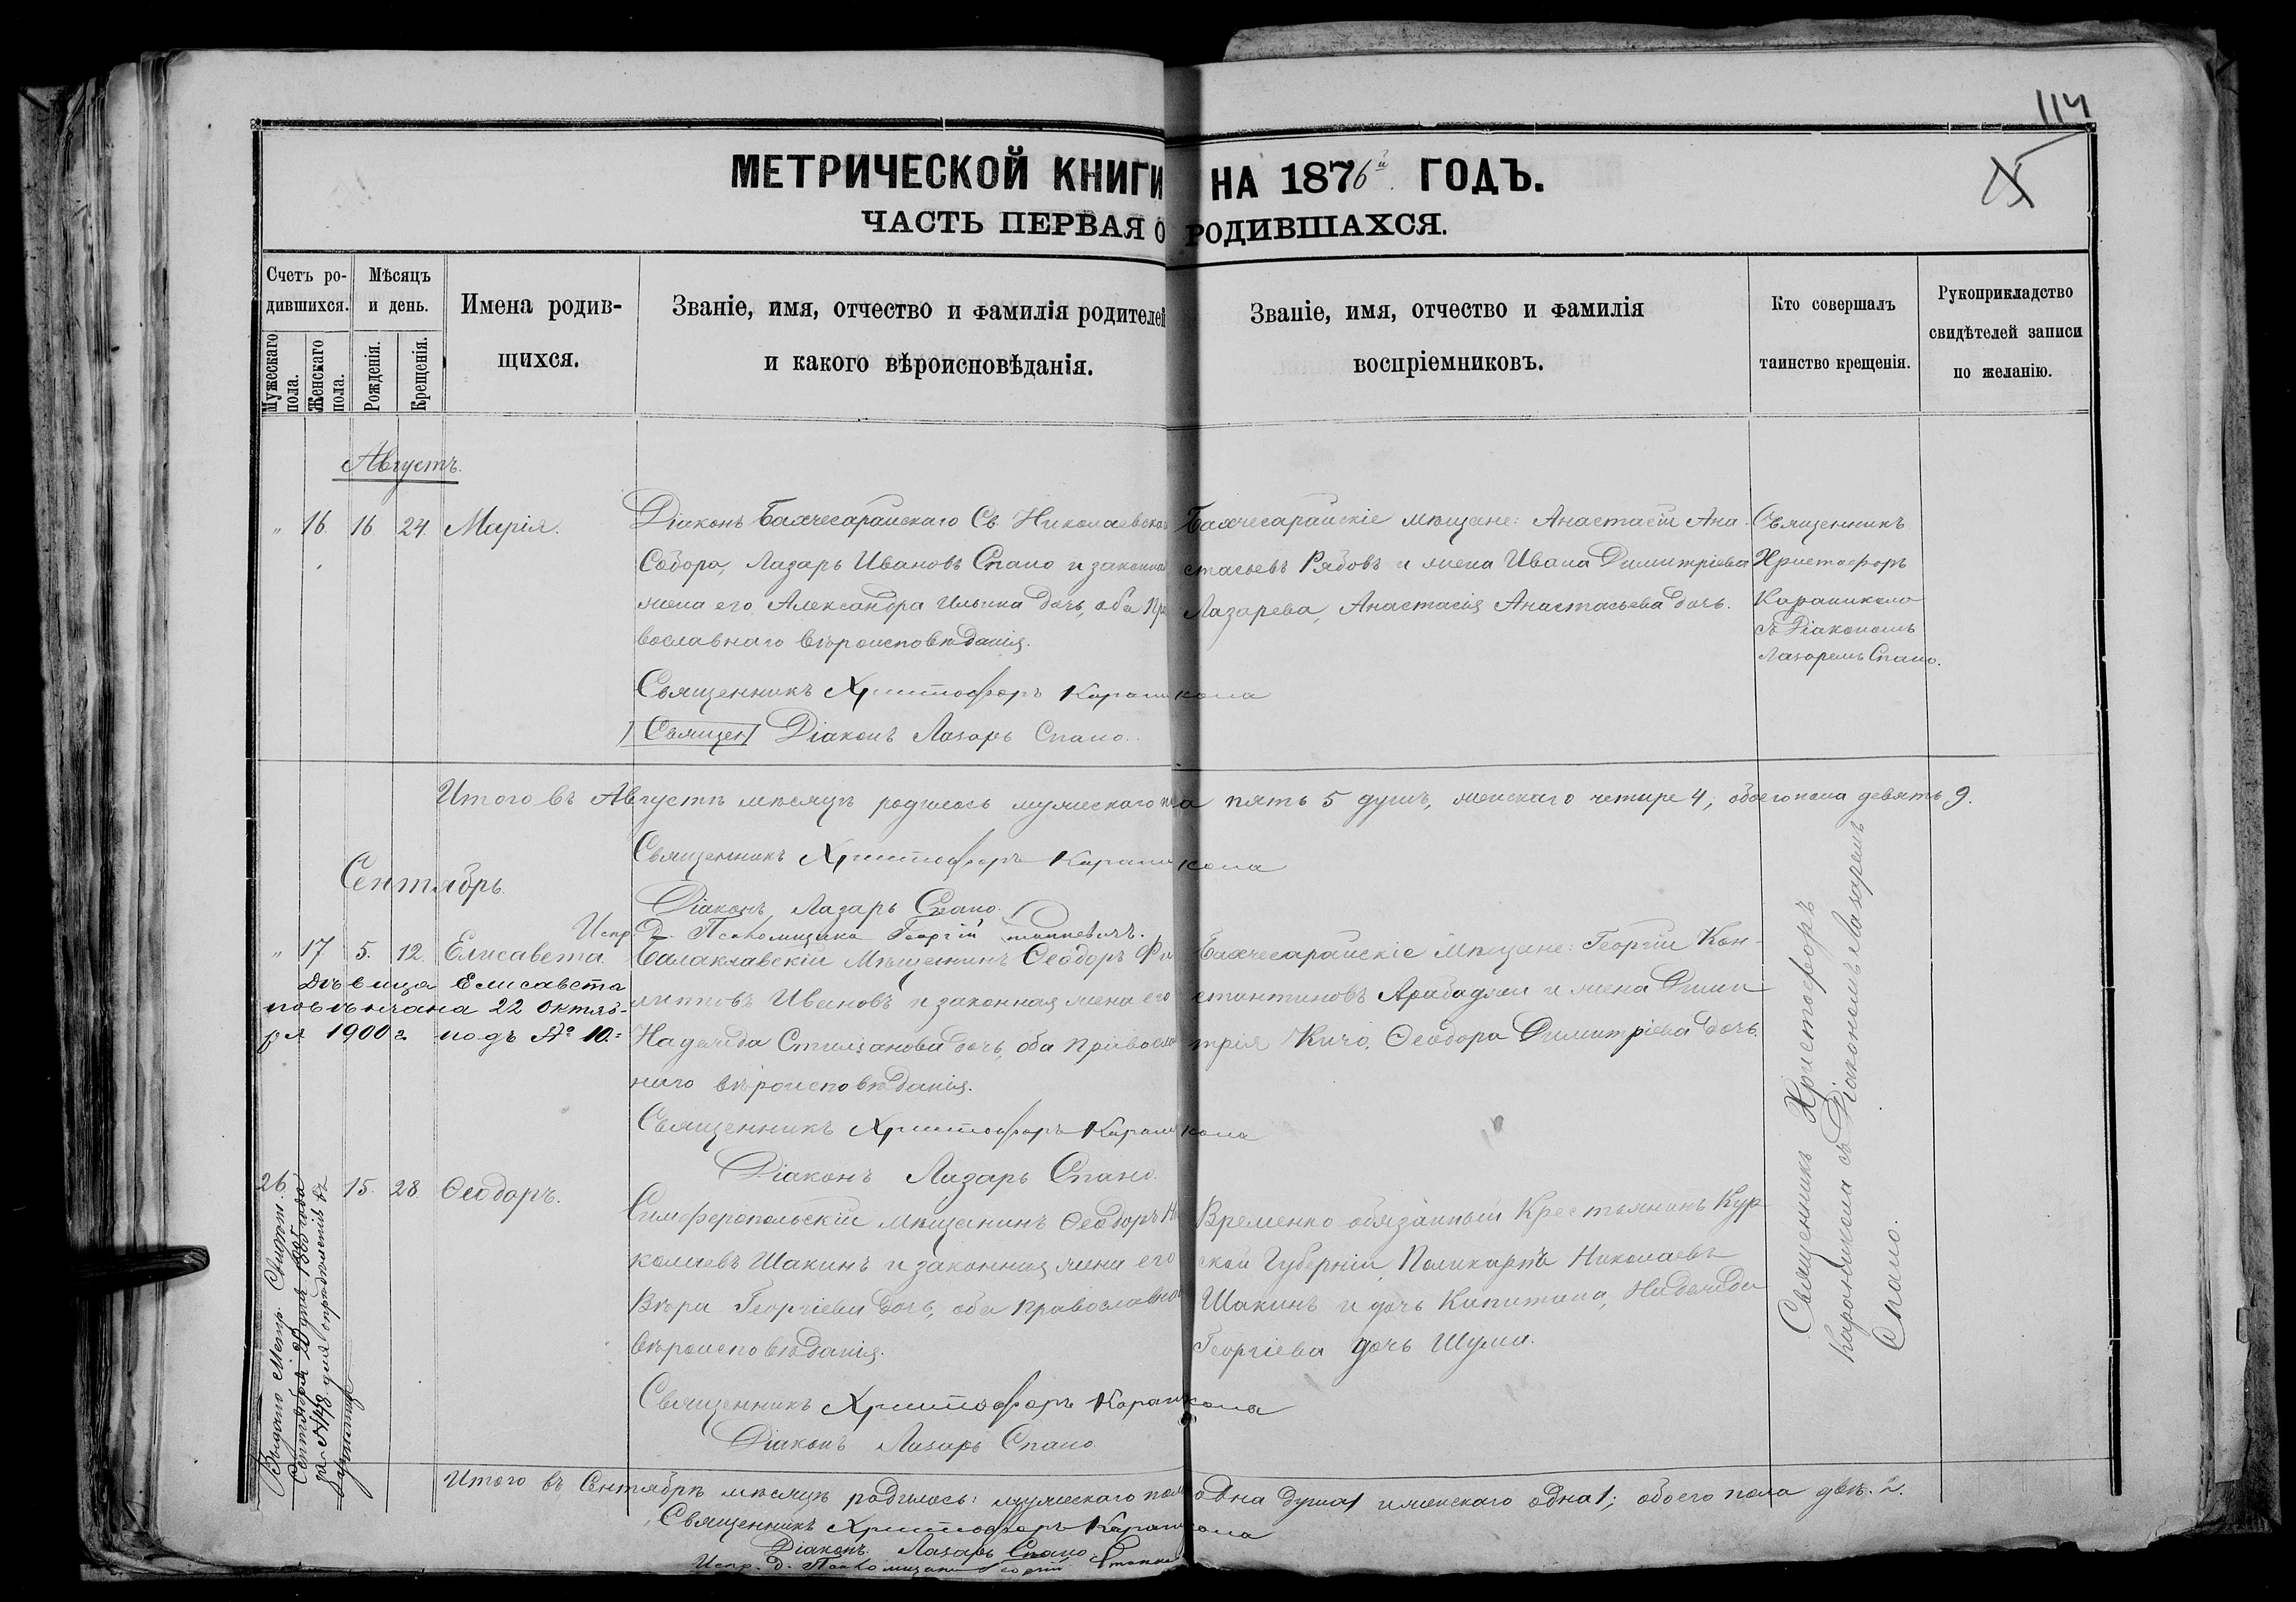 114
МЕТРИЧЕСКОЙ КНИГИ НА 1876й ГОДЪ.
ЧАСТЬ ПЕРВАЯ О РОДИВШАХСЯ.
Счетъ ро-
дившихся.
Мужескаго
пола.
Женскаго
пола.
Мѣсяцъ
и день.
Рожденія.
Крещенія.
Имена родив-
щихся.
Званіе, имя, отчество и фамилія родителей
и какого вѣроисповѣданія.
Званіе, имя, отчество и фамилія
воспріемниковъ.
Кто совершалъ
таинство крещенія.
Рукоприкладство
свидѣтелей записи
по желанію.
Августъ.
" 16. 16 24. Марія.
Діаконъ Бахчесарайскаго Св. Николаевска
Собора, Лазарь Ивановъ Спано и законная
жена его Александра Ильина дочь, оба Пра
вославнаго вѣроисповѣданія.
Священникъ Христофоръ Караникола
Священ Діаконъ Лазарь Спано.
Бахчесарайскіе мѣщане: Анастасій Ана-
стасьевъ Рябовъ и жена Ивана Димитріева
Лазарева, Анастасія Анастасьева дочь.
Священникъ
Христофоръ
Караникола
съ Діакономъ
Лазаремъ Спано.
Итого въ Августѣ мѣсяцѣ родилось мужескаго пола пять 5 душъ, женскаго четыре 4, обоего пола девять 9.
Священникъ Христофоръ Караникола
Діаконъ Лазарь Спано.
Испр. д. Псаломщика Георгій
Сентябрь.
" 17. 5. 12. Елисавета.
Дѣвица Елисавета
повѣнчана 22 Октяб-
ря 1900 г. подъ № 10.=
Балаклавскій Мѣщанинъ Ѳеодоръ Фи
липповъ Ивановъ и законная жена его
Надежда Стиліанова дочь, оба православ
наго вѣроисповѣданія.
Священникъ Христофоръ Караникола
Діаконъ Лазарь Спано.
Бахчесарайскіе Мѣщане: Георгій Кон-
стантиновъ Арабаджи и жена Дими
трія Кичо, Ѳеодора Димитріева дочь.
26. 15. 28. Ѳеодоръ.
Выдано Метр. Свидѣт.
Сентября 20 дня 1885 года
за № 148 для опредѣленія въ
Симферопольскій мѣщанинъ Ѳеодоръ Ни
колаевъ Шакинъ и законная жена его
Вѣра Георгіева дочь, оба православнаго
вѣроисповѣданія.
Священникъ Христофоръ Караникола
Діаконъ Лазарь Спано.
Временно обязанный Крестьянинъ Кур
ской Губерніи, Поликарпъ Николаевъ
Шакинъ и дочь Капитана, Надежда
Георгіева дочь Шуми.
Священникъ Христофоръ
Караникола съ Діакономъ Лазаремъ
Спано.
Итого въ Сентябрѣ мѣсяцѣ родилось: мужескаго пола одна душа 1 и женскаго одна 1; обоего пола двѣ. 2.
Священникъ Христофоръ Караникола
Діаконъ Лазарь Спано.
Испр. д. Псаломщика Георгій